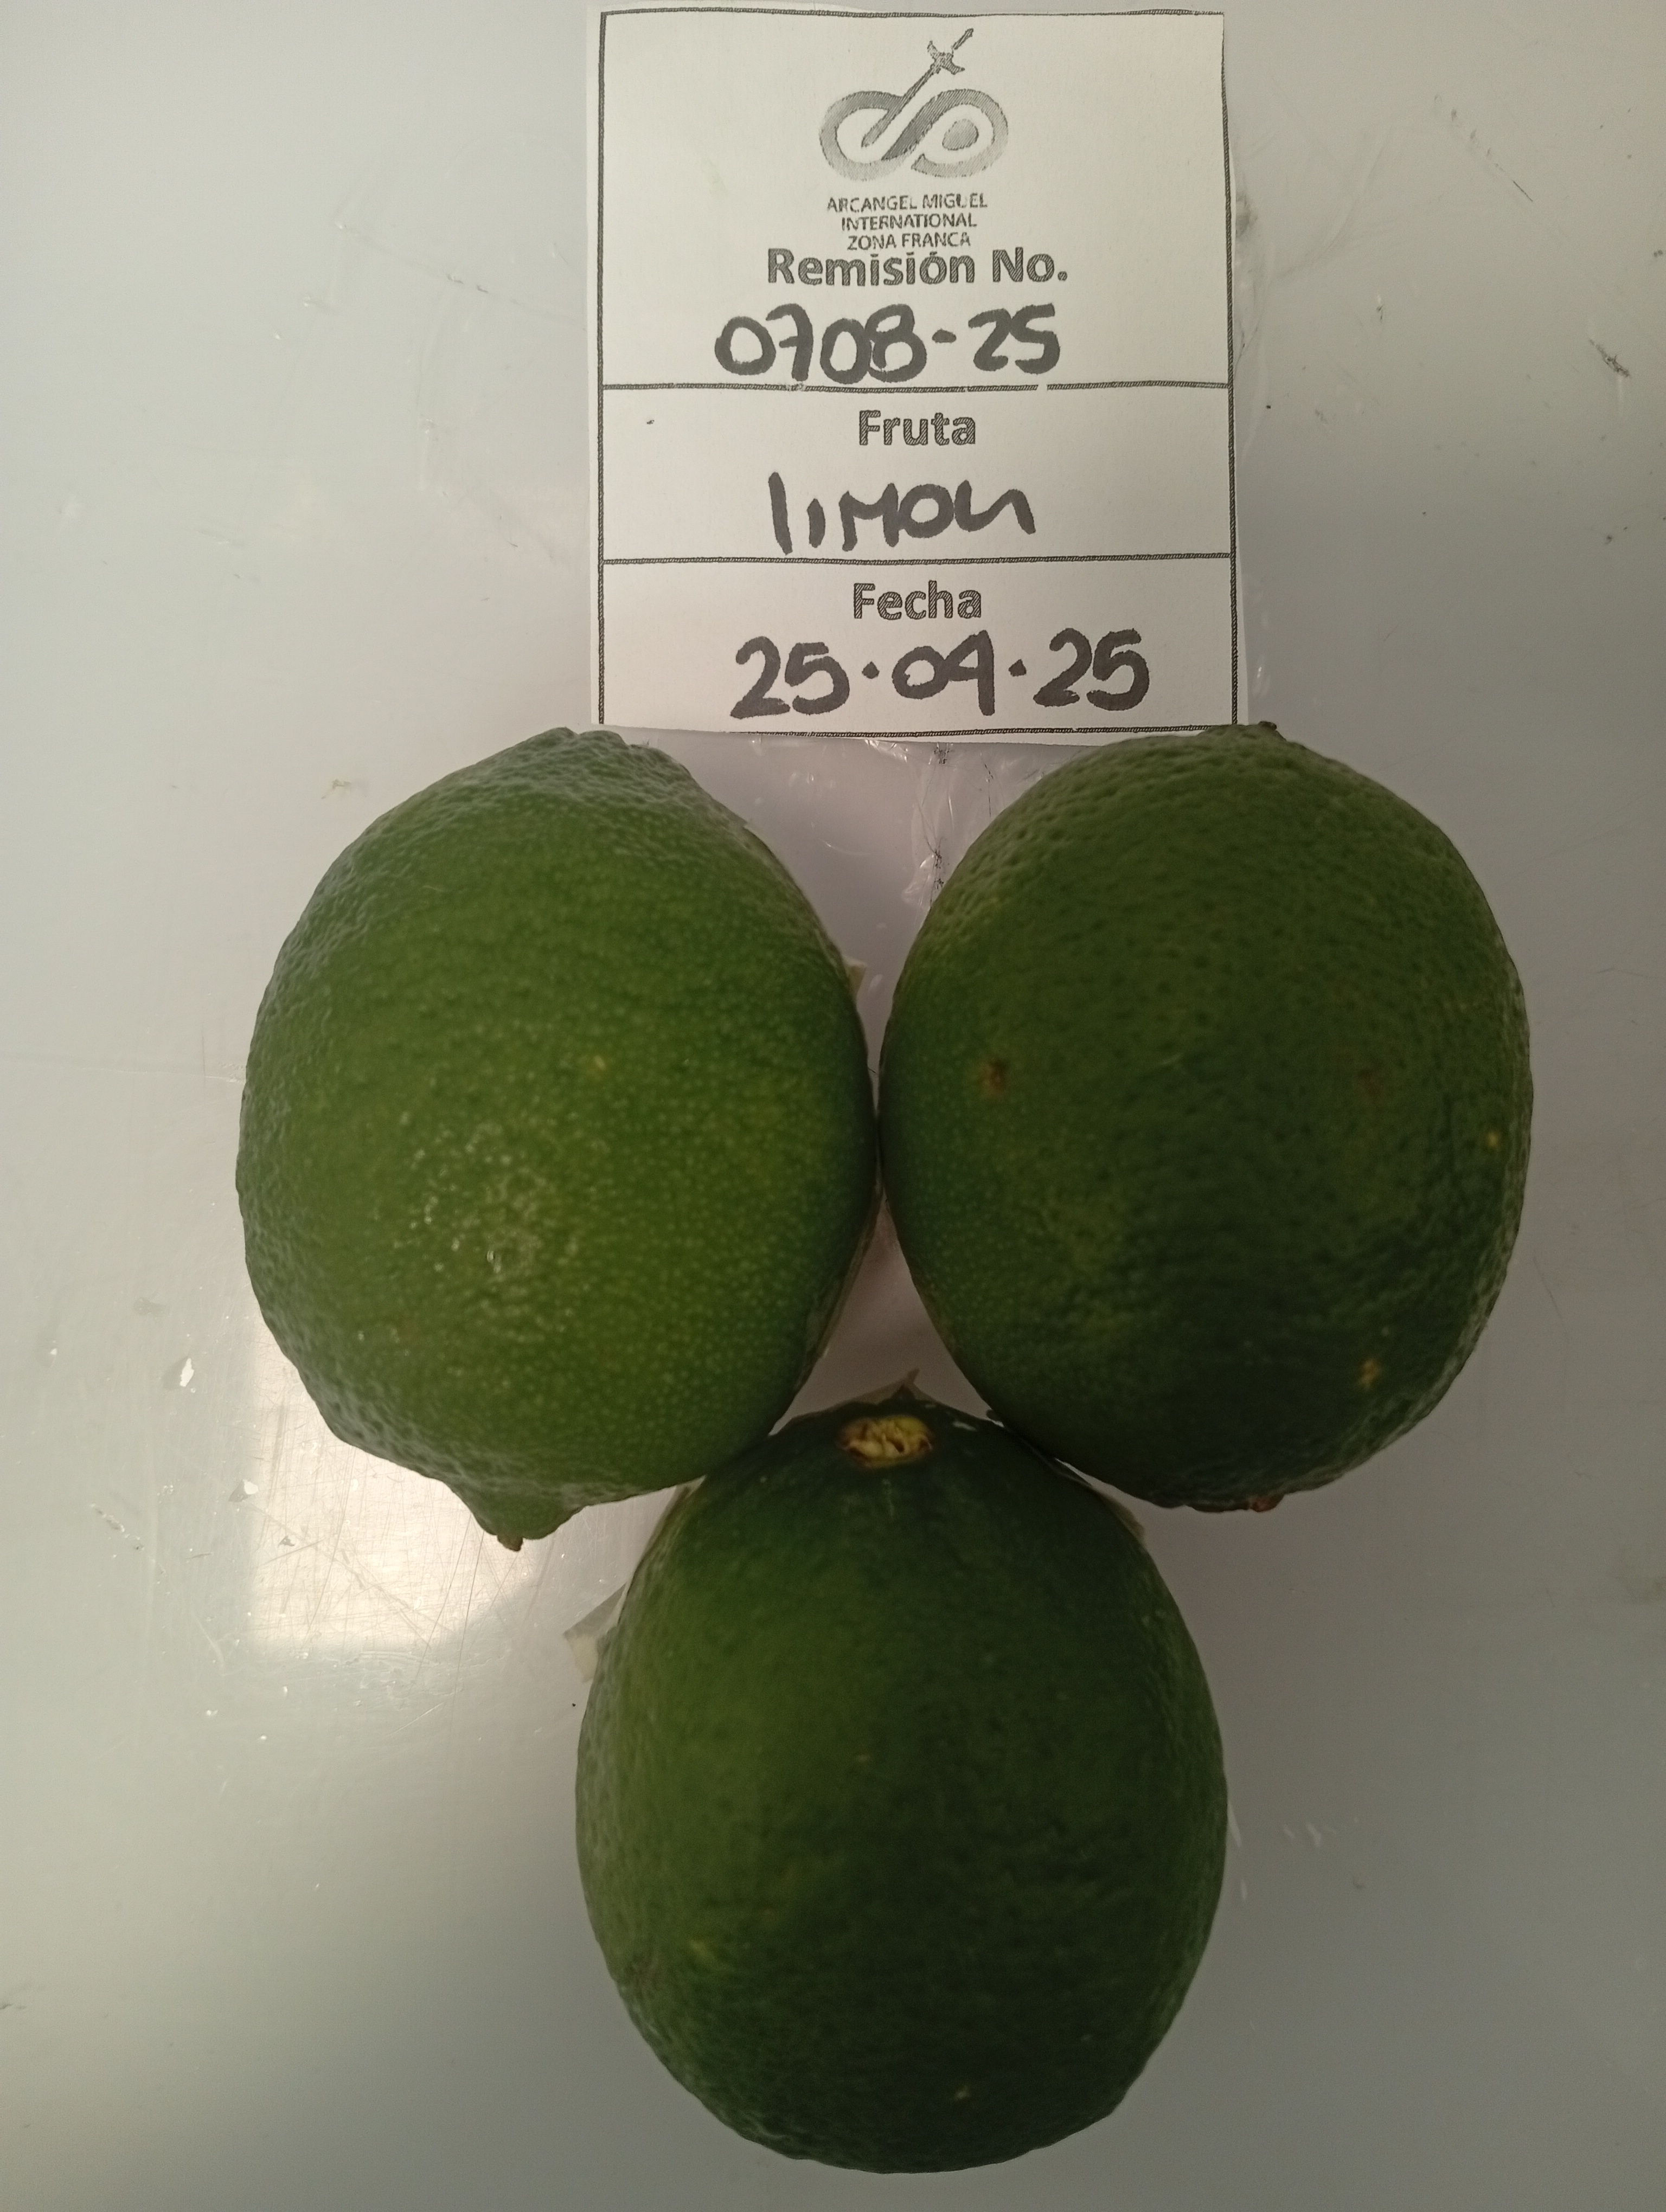 ARCANGEL MIGUEL
INTERNATIONAL
ZONA FRANCA
Remisión No.
0708-25
Fruta
limon
Fecha
25.04.25